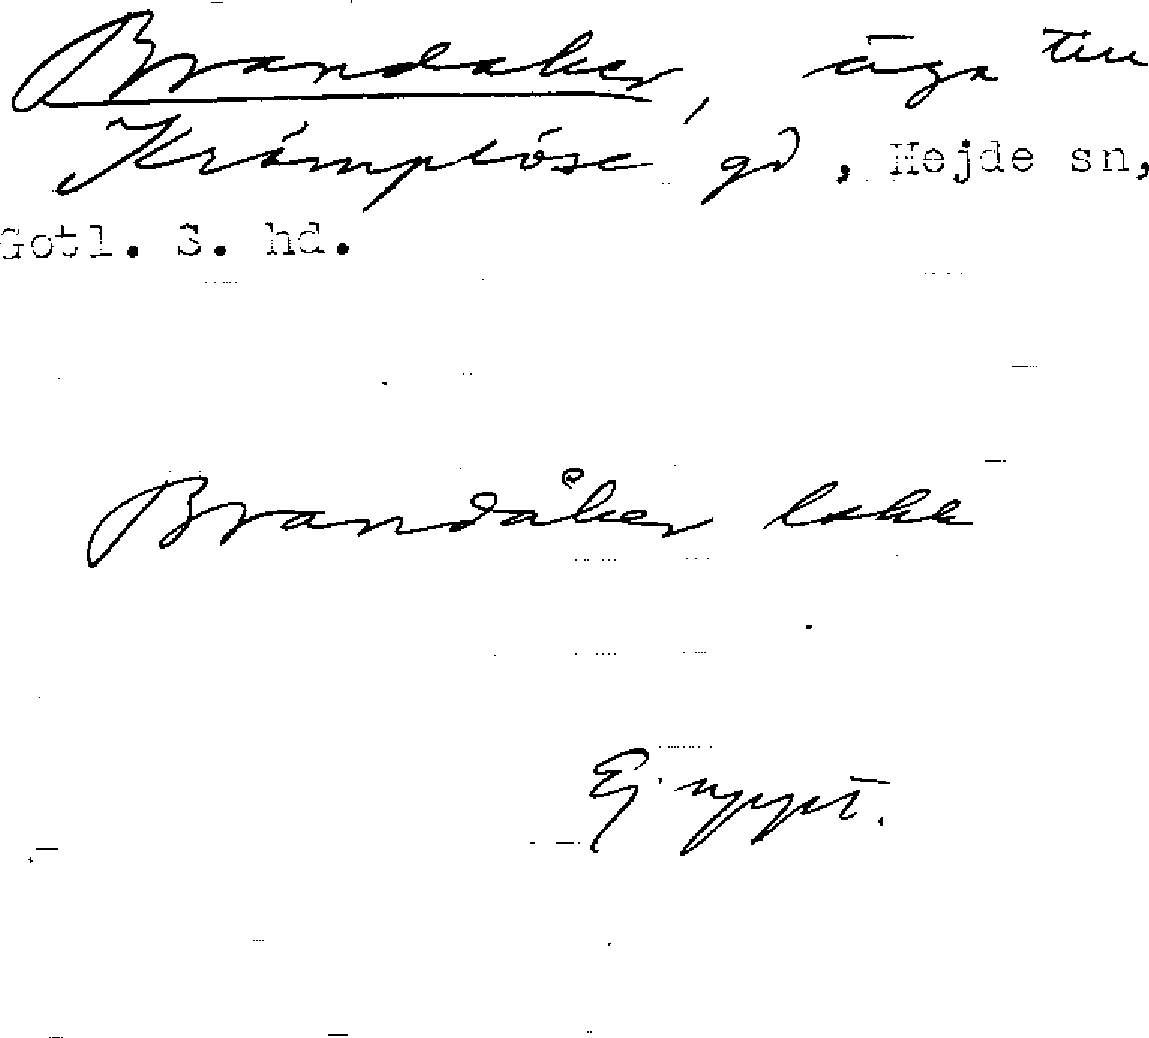 Brandaker, äga till
Krämplöse gd, Hejde sn,
Gotl. S. hd.
Brandåker
Ej uppt.